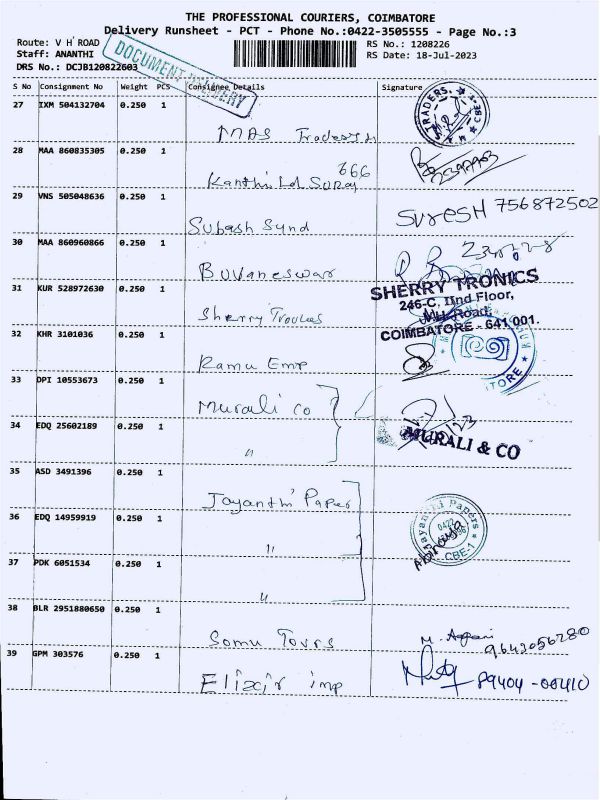 THE PROFESSIONAL COURIERS, COIMBATORE
Delivery Runsheet - PCT - Phone No.:0422-3505555 - Page No.:3
Route: V H ROAD
Staff: ANANTHI
DRS No.: DCJB120822603
DOCUMENT DELIVERY
RS No.: 1208226
RS Date: 18-Jul-2023
S No Consignment No Weight PCS Consignee Details Signature
27 IXM 504132704 0.250 1
TRADERS
CBE
MAS Traders
28 MAA 860835305 0.250 1
666
Kanthi Ld Suraj
29 VNS 505048636 0.250 1
SURESH 756872502
Subash Synd
30 MAA 860960866 0.250 1
Buvaneswar
31 KUR 528972630 0.250 1
SHERRY TRONICS
246-C, IInd Floor,
V.H. Road,
COIMBATORE - 641 001.
Sherry
32 KHR 3101036 0.250 1
Ramu Emp
33 DPI 10553673 0.250 1
Murali Co
34 EDQ 25602189 0.250 1
MURALI & CO
"
35 ASD 3491396 0.250 1
Jayanthi Paper
36 EDQ 14959919 0.250 1
Jayanthi Papers
CBE-1
"
37 PDK 6051534 0.250 1
"
38 BLR 2951880650 0.250 1
Somu Tours
M.
9643056280
39 GPM 303576 0.250 1
Elixir imp
89404-00410